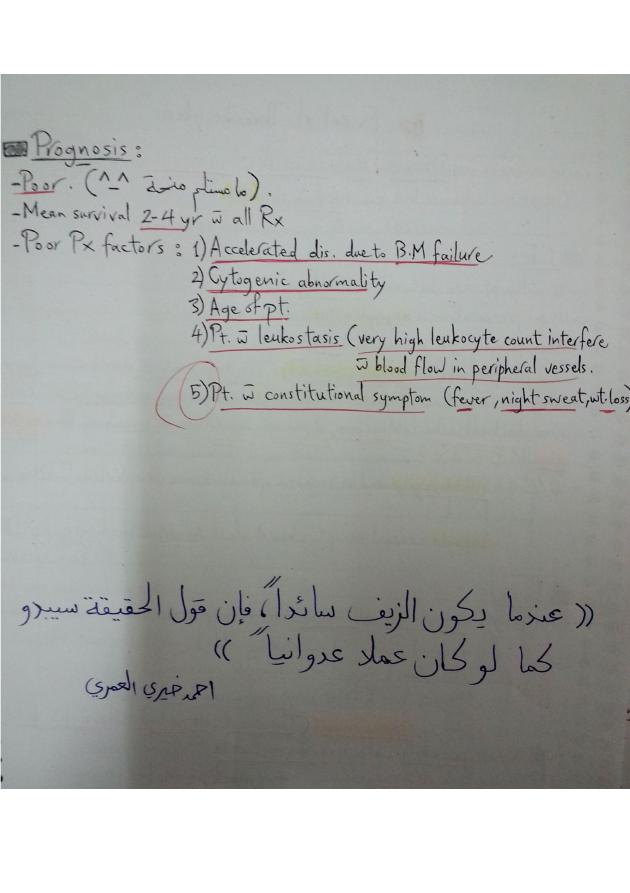 Prognosis :
- Poor . (ما مستلم منحة ^_^) .
- Mean survival 2-4 yr w̄ all Rx
- Poor Px factors : 1) Accelerated dis. due to B.M failure
2) Cytogenic abnormality
3) Age of pt.
4) Pt. w̄ leukostasis (very high leukocyte count interfere
w̄ blood flow in peripheral vessels.
5) Pt. w̄ constitutional symptom (fever, night sweat, wt. loss)
(( عندما يكون الزيف سائداً، فإن قول الحقيقة سيبدو
كما لو كان عملا عدوانياً ))
احمد خيري العمري